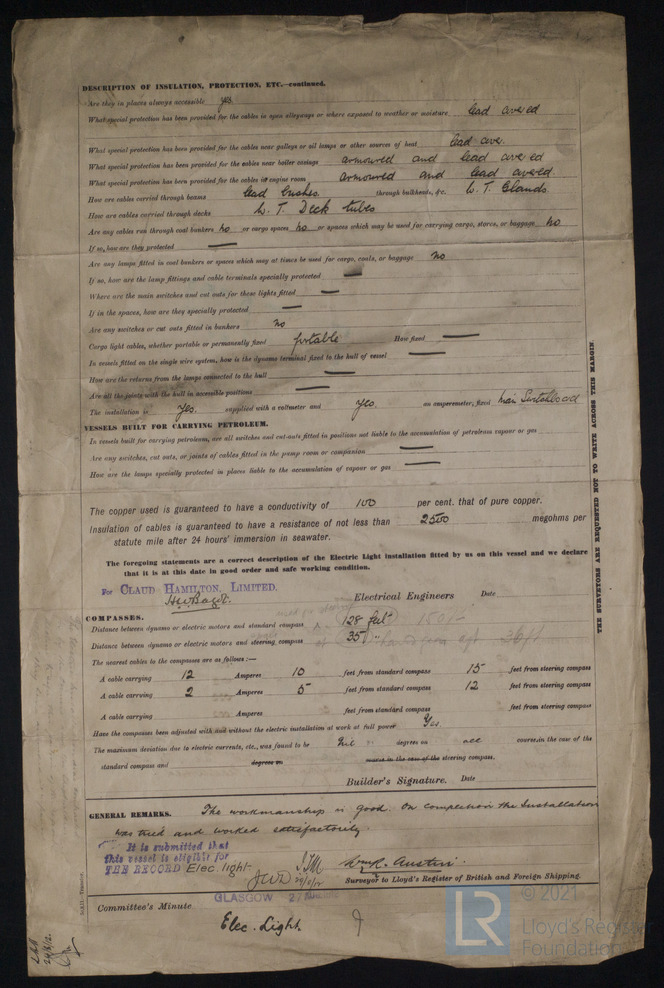 DESCRIPTION OF INSULATION, PROTECTION, ETC.—continued.
Are they in places always accessible yes.
What special protection has been provided for the cables in open alleyways or where exposed to weather or moisture lead covered
What special protection has been provided for the cables near galleys or oil lamps or other sources of heat lead cover.
What special protection has been provided for the cables near boiler casings armoured and lead covered
What special protection has been provided for the cables in engine room armoured and lead covered.
How are cables carried through beams lead bushes. through bulkheads, &c. W. T. Glands
How are cables carried through decks W. T. Deck tubes
Are any cables run through coal bunkers no or cargo spaces no or spaces which may be used for carrying cargo, stores, or baggage no
If so, how are they protected
Are any lamps fitted in coal bunkers or spaces which may at times be used for cargo, coals, or baggage no
If so, how are the lamp fittings and cable terminals specially protected
Where are the main switches and cut outs for these lights fitted
If in the spaces, how are they specially protected
Are any switches or cut outs fitted in bunkers no
Cargo light cables, whether portable or permanently fixed portable How fixed
In vessels fitted on the single wire system, how is the dynamo terminal fixed to the hull of vessel
How are the returns from the lamps connected to the hull
Are all the joints with the hull in accessible positions
The installation is yes. supplied with a voltmeter and yes an amperemeter, fixed main Switchboard
VESSELS BUILT FOR CARRYING PETROLEUM.
In vessels built for carrying petroleum, are all switches and cut-outs fitted in positions not liable to the accumulation of petroleum vapour or gas
Are any switches, cut outs, or joints of cables fitted in the pump room or companion
How are the lamps specially protected in places liable to the accumulation of vapour or gas
The copper used is guaranteed to have a conductivity of 100 per cent. that of pure copper.
Insulation of cables is guaranteed to have a resistance of not less than 2500 megohms per
statute mile after 24 hours' immersion in seawater.
The foregoing statements are a correct description of the Electric Light installation fitted by us on this vessel and we declare
that it is at this date in good order and safe working condition.
For CLAUD HAMILTON, LIMITED.
Electrical Engineers Date
COMPASSES.
Distance between dynamo or electric motors and standard compass 128 feet
Distance between dynamo or electric motors and steering compass 350 "
The nearest cables to the compasses are as follows:—
A cable carrying 12 Amperes 10 feet from standard compass 15 feet from steering compass
A cable carrying 2 Amperes 5 feet from standard compass 12 feet from steering compass
A cable carrying Amperes feet from standard compass feet from steering compass
Have the compasses been adjusted with and without the electric installation at work at full power Yes
The maximum deviation due to electric currents, etc., was found to be Nil degrees on all course in the case of the
standard compass and degrees on course in the case of the steering compass.
Builder's Signature. Date
GENERAL REMARKS. The workmanship is good. On completion the Installation
was tried and worked satisfactorily
It is submitted that
this vessel is eligible for
THE RECORD Elec. light
Wm R. Austin.
Surveyor to Lloyd's Register of British and Foreign Shipping.
GLASGOW
Committee's Minute
Elec. Light.
THE SURVEYORS ARE REQUESTED NOT TO WRITE ACROSS THIS MARGIN.
© 2021
LR
Lloyd's Register
Foundation